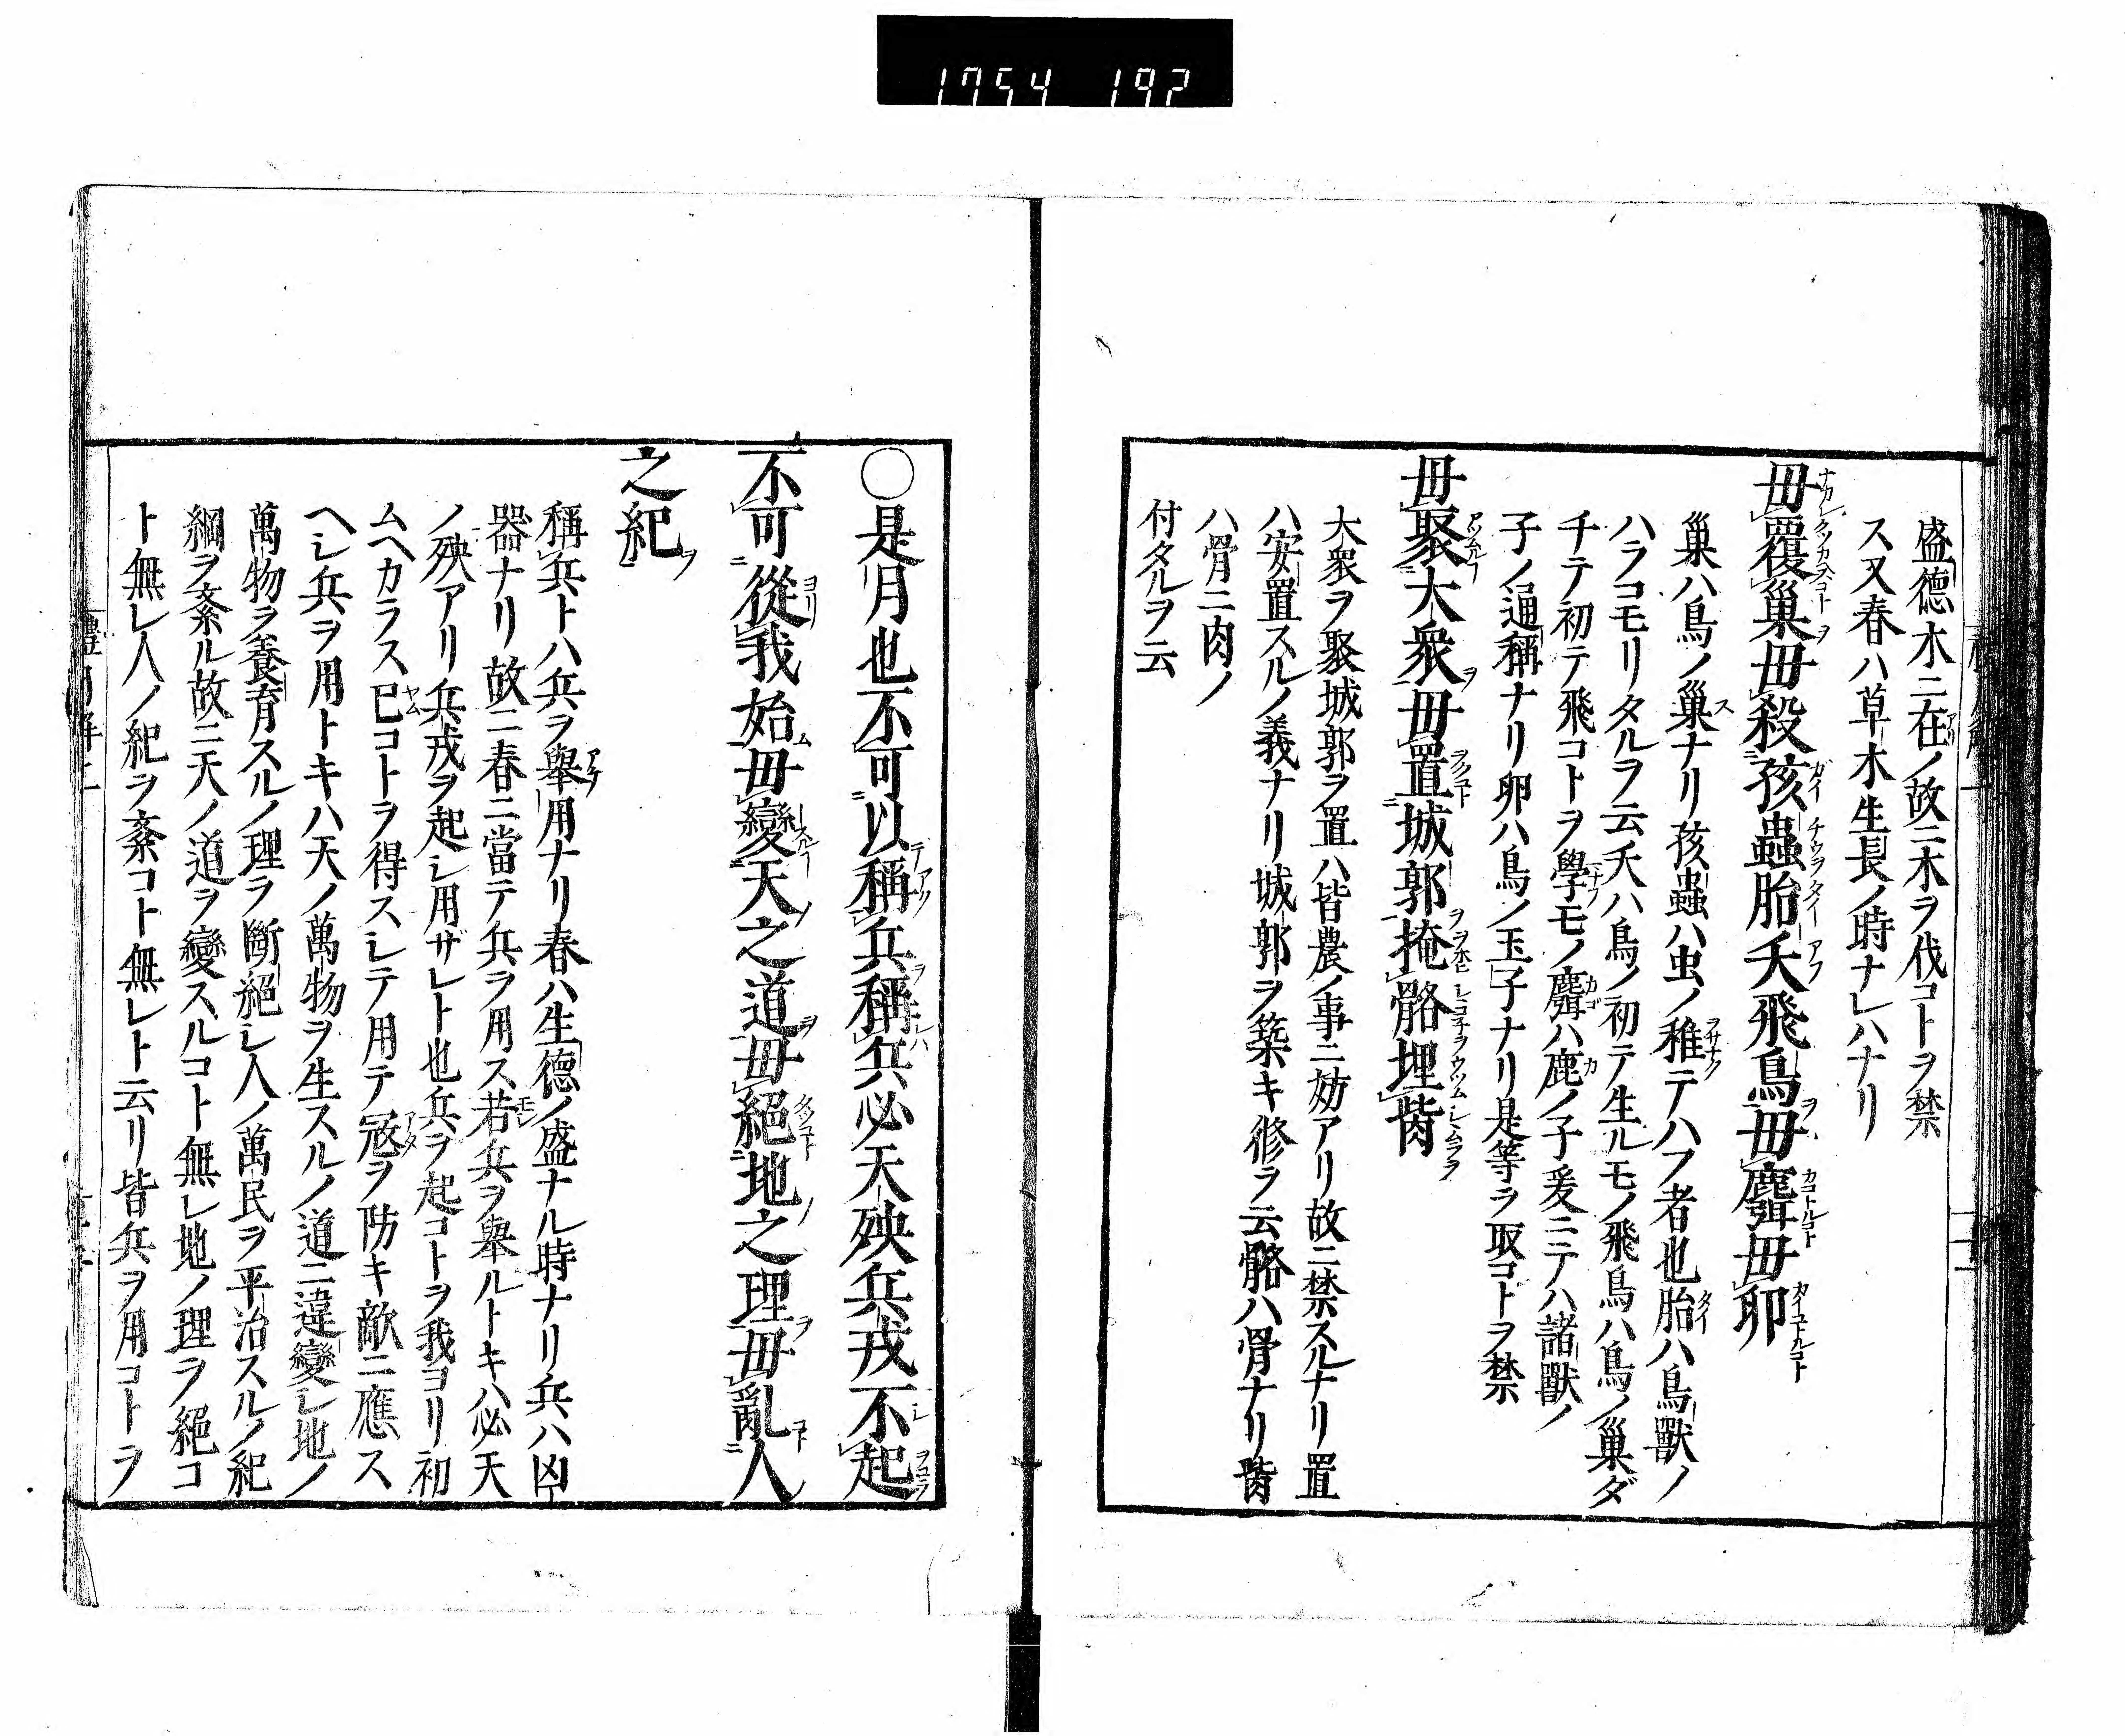 1754 192
盛德木ニ在ノ故ニ木ヲ伐コトヲ禁
ス又春ハ草木生長ノ時ナレハナリ
毋覆巢毋殺孩蟲胎夭飛鳥毋麛毋卵
巢ハ鳥ノ巢ナリ孩蟲ハ虫ノ稚テハフ者也胎ハ鳥獸ノ
ハラコモリタルヲ云夭ハ鳥ノ初テ生ルモノ飛鳥ハ鳥ノ巢ダ
チテ初テ飛コトヲ學モノ麛ハ鹿ノ子爰ニテハ諸獸ノ
子ノ通稱ナリ卵ハ鳥ノ玉子ナリ是等ヲ取コトヲ禁
毋聚大衆毋置城郭掩骼埋胔
大衆ヲ聚城郭ヲ置ハ皆農ノ事ニ妨アリ故ニ禁スルナリ置
ハ安置スルノ義ナリ城郭ヲ築キ修ヲ云骼ハ骨ナリ胔
ハ骨ニ肉ノ
付タルヲ云
○是月也不可以稱兵稱兵必天殃兵戎不起
不可從我始毋變天之道毋絕地之理毋亂人
之紀
稱兵トハ兵ヲ舉用ナリ春ハ生德ノ盛ナル時ナリ兵ハ凶
器ナリ故ニ春ニ當テ兵ヲ用ス若兵ヲ舉ルトキハ必天
ノ殃アリ兵戎ヲ起シ用ザレト也兵ヲ起コトヲ我ヨリ初
ムヘカラス已コトヲ得スシテ用テ寇ヲ防キ敵ニ應ス
ヘシ兵ヲ用トキハ天ノ萬物ヲ生スルノ道ニ違變シ地ノ
萬物ヲ養育スルノ理ヲ斷絕シ人ノ萬民ヲ平治スルノ紀
綱ヲ紊ル故ニ天ノ道ヲ變スルコト無レ地ノ理ヲ絕コ
ト無レ人ノ紀ヲ紊コト無レト云リ皆兵ヲ用コトヲ